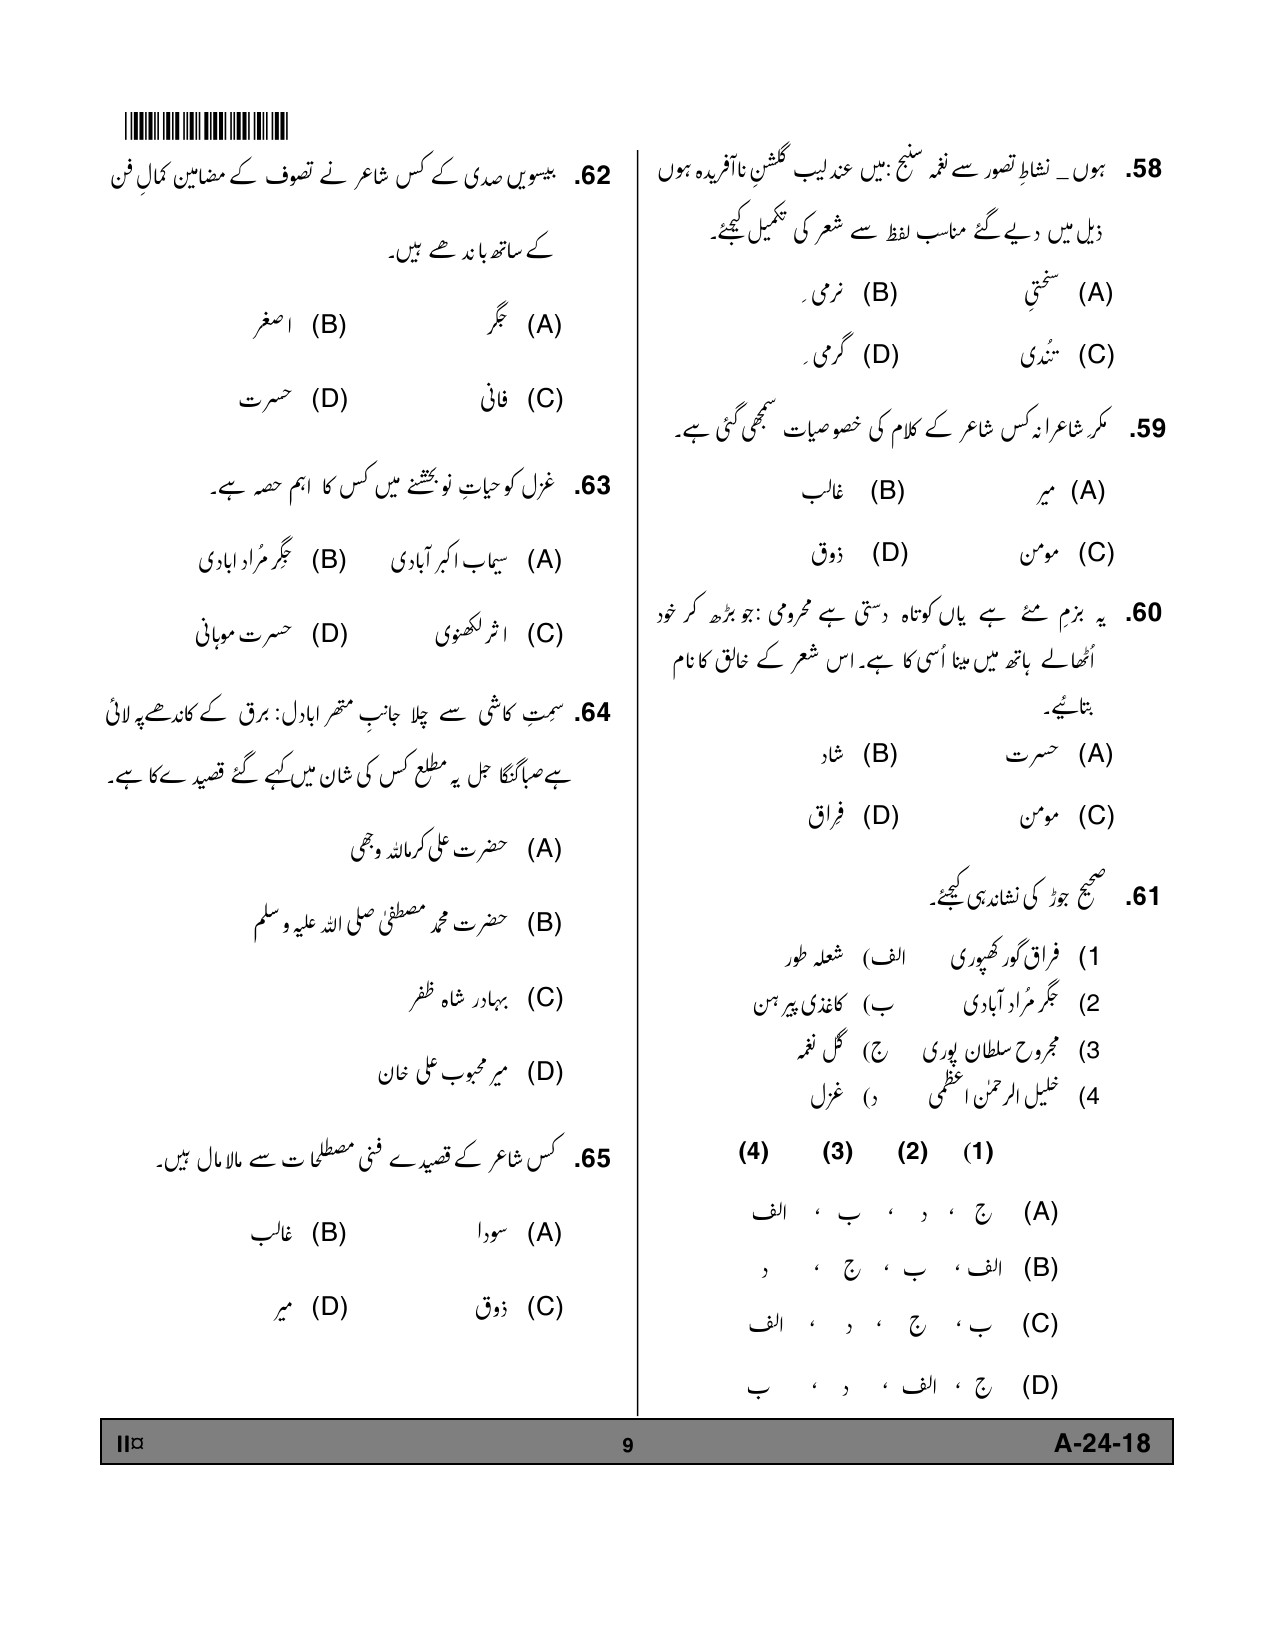 58. ہوں _ نشاطِ تصور سے نغمہ سنج :میں عندلیب گلشنِ ناآفریدہ ہوں
ذیل میں دیے گئے مناسب لفظ سے شعر کی تکمیل کیجئے۔
(A) سختیِ (B) نرمی ِ
(C) تُندی (D) گرمی ِ
59. مکرِ شاعرانہ کس شاعر کے کلام کی خصوصیات سمجھی گئی ہے۔
(A) میر (B) غالب
(C) مومن (D) ذوق
60. یہ بزمِ مئے ہے یاں کوتاہ دستی ہے محرومی :جو بڑھ کر خود
اُٹھالے ہاتھ میں مینا اُسی کا ہے۔ اس شعر کے خالق کا نام
بتائیے۔
(A) حسرت (B) شاد
(C) مومن (D) فِراق
61. صحیح جوڑ کی نشاندہی کیجئے۔
1) فراق گورکھپوری الف) شعلہ طور
2) جگر مُراد آبادی ب) کاغذی پیرہن
3) مجروح سلطان پوری ج) گل نغمہ
4) خلیل الرحمٰن اعظمی د) غزل
(1) (2) (3) (4)
(A) ج ، د ، ب ، الف
(B) الف ، ب ، ج ، د
(C) ب ، ج ، د ، الف
(D) ج ، الف ، د ، ب
62. بیسویں صدی کے کس شاعر نے تصوف کے مضامین کمالِ فن
کے ساتھ باندھے ہیں۔
(A) جگر (B) اصغر
(C) فانی (D) حسرت
63. غزل کو حیاتِ نو بخشنے میں کس کا اہم حصہ ہے۔
(A) سیماب اکبر آبادی (B) جگِر مُراد ابادی
(C) اثر لکھنوی (D) حسرت موہانی
64. سِمتِ کاشی سے چلا جانبِ متھرا بادل: برق کے کاندھے پہ لائی
ہے صبا گنگا جل یہ مطلع کس کی شان میں کہے گئے قصیدے کا ہے۔
(A) حضرت علی کرماللہ وجھی
(B) حضرت محمد مصطفیٰ صلی اللہ علیہ وسلم
(C) بہادر شاہ ظفر
(D) میر محبوب علی خان
65. کس شاعر کے قصیدے فنی مصطلحات سے مالا مال ہیں۔
(A) سودا (B) غالب
(C) ذوق (D) میر
II¤ 9 A-24-18